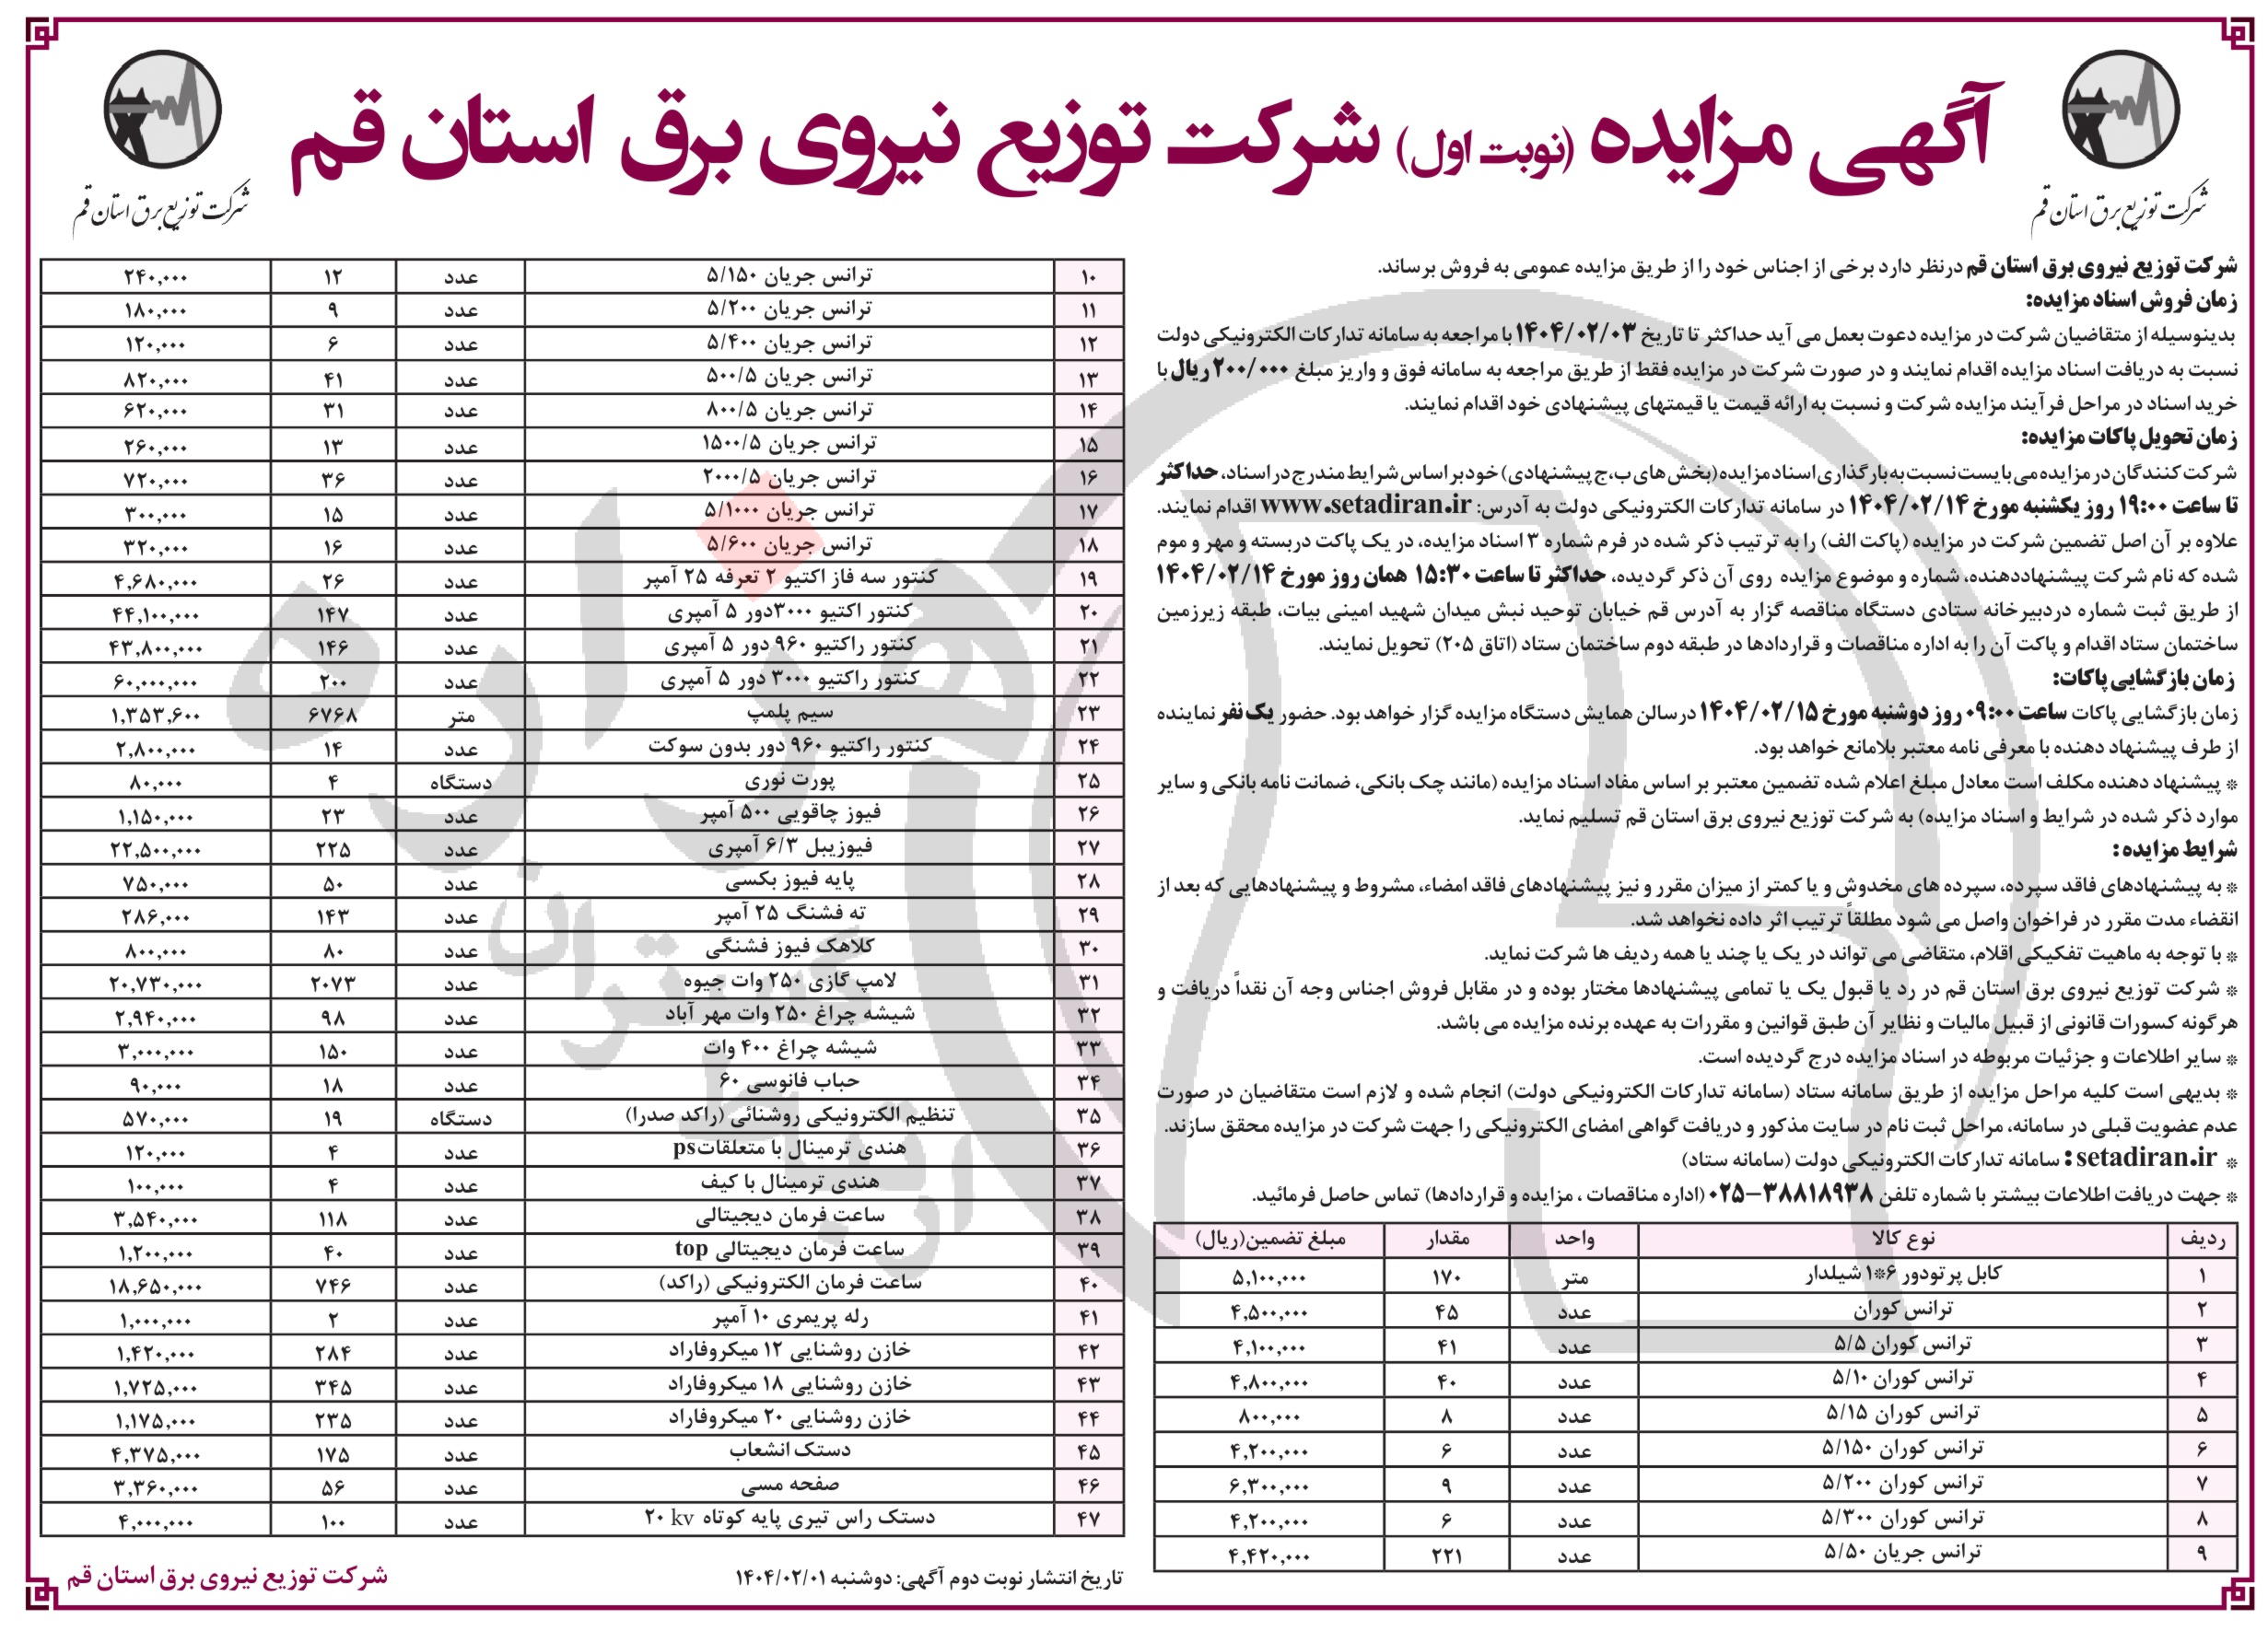 آگهی مزایده (نوبت اول) شرکت توزیع نیروی برق استان قم
شرکت توزیع برق استان قم
شرکت توزیع برق استان قم
شرکت توزیع نیروی برق استان قم درنظر دارد برخی از اجناس خود را از طریق مزایده عمومی به فروش برساند.
زمان فروش اسناد مزایده:
بدینوسیله از متقاضیان شرکت در مزایده دعوت بعمل می آید حداکثر تا تاریخ ۱۴۰۴/۰۲/۰۳ با مراجعه به سامانه تدارکات الکترونیکی دولت
نسبت به دریافت اسناد مزایده اقدام نمایند و در صورت شرکت در مزایده فقط از طریق مراجعه به سامانه فوق و واریز مبلغ ۲۰۰/۰۰۰ ریال با
خرید اسناد در مراحل فرآیند مزایده شرکت و نسبت به ارائه قیمت یا قیمتهای پیشنهادی خود اقدام نمایند.
زمان تحویل پاکات مزایده:
شرکت کنندگان در مزایده می بایست نسبت به بارگذاری اسناد مزایده (بخش های ب،ج پیشنهادی) خود بر اساس شرایط مندرج در اسناد، حداکثر
تا ساعت ۱۹:۰۰ روز یکشنبه مورخ ۱۴۰۴/۰۲/۱۴ در سامانه تدارکات الکترونیکی دولت به آدرس: www.setadiran.ir اقدام نمایند.
علاوه بر آن اصل تضمین شرکت در مزایده (پاکت الف) را به ترتیب ذکر شده در فرم شماره ۳ اسناد مزایده، در یک پاکت دربسته و مهر و موم
شده که نام شرکت پیشنهاددهنده، شماره و موضوع مزایده روی آن ذکر گردیده، حداکثر تا ساعت ۱۵:۳۰ همان روز مورخ ۱۴۰۴/۰۲/۱۴
از طریق ثبت شماره دردبیرخانه ستادی دستگاه مناقصه گزار به آدرس قم خیابان توحید نبش میدان شهید امینی بیات، طبقه زیرزمین
ساختمان ستاد اقدام و پاکت آن را به اداره مناقصات و قراردادها در طبقه دوم ساختمان ستاد (اتاق ۲۰۵) تحویل نمایند.
زمان بازگشایی پاکات:
زمان بازگشایی پاکات ساعت ۰۹:۰۰ روز دوشنبه مورخ ۱۴۰۴/۰۲/۱۵ درسالن همایش دستگاه مزایده گزار خواهد بود. حضور یک نفر نماینده
از طرف پیشنهاد دهنده با معرفی نامه معتبر بلامانع خواهد بود.
* پیشنهاد دهنده مکلف است معادل مبلغ اعلام شده تضمین معتبر بر اساس مفاد اسناد مزایده (مانند چک بانکی، ضمانت نامه بانکی و سایر
موارد ذکر شده در شرایط و اسناد مزایده) به شرکت توزیع نیروی برق استان قم تسلیم نماید.
شرایط مزایده :
* به پیشنهادهای فاقد سپرده، سپرده های مخدوش و یا کمتر از میزان مقرر و نیز پیشنهادهای فاقد امضاء، مشروط و پیشنهادهایی که بعد از
انقضاء مدت مقرر در فراخوان واصل می شود مطلقاً ترتیب اثر داده نخواهد شد.
* با توجه به ماهیت تفکیکی اقلام، متقاضی می تواند در یک یا چند یا همه ردیف ها شرکت نماید.
* شرکت توزیع نیروی برق استان قم در رد یا قبول یک یا تمامی پیشنهادها مختار بوده و در مقابل فروش اجناس وجه آن نقداً دریافت و
هرگونه کسورات قانونی از قبیل مالیات و نظایر آن طبق قوانین و مقررات به عهده برنده مزایده می باشد.
* سایر اطلاعات و جزئیات مربوطه در اسناد مزایده درج گردیده است.
* بدیهی است کلیه مراحل مزایده از طریق سامانه ستاد (سامانه تدارکات الکترونیکی دولت) انجام شده و لازم است متقاضیان در صورت
عدم عضویت قبلی در سامانه، مراحل ثبت نام در سایت مذکور و دریافت گواهی امضای الکترونیکی را جهت شرکت در مزایده محقق سازند.
* setadiran.ir : سامانه تدارکات الکترونیکی دولت (سامانه ستاد)
* جهت دریافت اطلاعات بیشتر با شماره تلفن ۳۸۸۱۸۹۳۸-۰۲۵ (اداره مناقصات ، مزایده و قراردادها) تماس حاصل فرمائید.
ردیف نوع کالا واحد مقدار مبلغ تضمین(ریال)
۱ کابل پرتودور ۶*۱ شیلدار متر ۱۷۰ ۵,۱۰۰,۰۰۰
۲ ترانس کوران عدد ۴۵ ۴,۵۰۰,۰۰۰
۳ ترانس کوران ۵/۵ عدد ۴۱ ۴,۱۰۰,۰۰۰
۴ ترانس کوران ۵/۱۰ عدد ۴۰ ۴,۸۰۰,۰۰۰
۵ ترانس کوران ۵/۱۵ عدد ۸ ۸۰۰,۰۰۰
۶ ترانس کوران ۵/۱۵۰ عدد ۶ ۴,۲۰۰,۰۰۰
۷ ترانس کوران ۵/۲۰۰ عدد ۹ ۶,۳۰۰,۰۰۰
۸ ترانس کوران ۵/۳۰۰ عدد ۶ ۴,۲۰۰,۰۰۰
۹ ترانس جریان ۵/۵۰ عدد ۲۲۱ ۴,۴۲۰,۰۰۰
۱۰ ترانس جریان ۵/۱۵۰ عدد ۱۲ ۲۴۰,۰۰۰
۱۱ ترانس جریان ۵/۲۰۰ عدد ۹ ۱۸۰,۰۰۰
۱۲ ترانس جریان ۵/۴۰۰ عدد ۶ ۱۲۰,۰۰۰
۱۳ ترانس جریان ۵۰۰/۵ عدد ۴۱ ۸۲۰,۰۰۰
۱۴ ترانس جریان ۸۰۰/۵ عدد ۳۱ ۶۲۰,۰۰۰
۱۵ ترانس جریان ۱۵۰۰/۵ عدد ۱۳ ۲۶۰,۰۰۰
۱۶ ترانس جریان ۲۰۰۰/۵ عدد ۳۶ ۷۲۰,۰۰۰
۱۷ ترانس جریان ۵/۱۰۰۰ عدد ۱۵ ۳۰۰,۰۰۰
۱۸ ترانس جریان ۵/۶۰۰ عدد ۱۶ ۳۲۰,۰۰۰
۱۹ کنتور سه فاز اکتیو ۲ تعرفه ۲۵ آمپر عدد ۲۶ ۴,۶۸۰,۰۰۰
۲۰ کنتور اکتیو ۳۰۰۰دور ۵ آمپری عدد ۱۴۷ ۴۴,۱۰۰,۰۰۰
۲۱ کنتور راکتیو ۹۶۰ دور ۵ آمپری عدد ۱۴۶ ۴۳,۸۰۰,۰۰۰
۲۲ کنتور راکتیو ۳۰۰۰ دور ۵ آمپری عدد ۲۰۰ ۶۰,۰۰۰,۰۰۰
۲۳ سیم پلمپ متر ۶۷۶۸ ۱,۳۵۳,۶۰۰
۲۴ کنتور راکتیو ۹۶۰ دور بدون سوکت عدد ۱۴ ۲,۸۰۰,۰۰۰
۲۵ پورت نوری دستگاه ۴ ۸۰,۰۰۰
۲۶ فیوز چاقویی ۵۰۰ آمپر عدد ۲۳ ۱,۱۵۰,۰۰۰
۲۷ فیوزیبل ۶/۳ آمپری عدد ۲۲۵ ۲۲,۵۰۰,۰۰۰
۲۸ پایه فیوز بکسی عدد ۵۰ ۷۵۰,۰۰۰
۲۹ ته فشنگ ۲۵ آمپر عدد ۱۴۳ ۲۸۶,۰۰۰
۳۰ کلاهک فیوز فشنگی عدد ۸۰ ۸۰۰,۰۰۰
۳۱ لامپ گازی ۲۵۰ وات جیوه عدد ۲۰۷۳ ۲۰,۷۳۰,۰۰۰
۳۲ شیشه چراغ ۲۵۰ وات مهر آباد عدد ۹۸ ۲,۹۴۰,۰۰۰
۳۳ شیشه چراغ ۴۰۰ وات عدد ۱۵۰ ۳,۰۰۰,۰۰۰
۳۴ حباب فانوسی ۶۰ عدد ۱۸ ۹۰,۰۰۰
۳۵ تنظیم الکترونیکی روشنائی (راکد صدرا) دستگاه ۱۹ ۵۷۰,۰۰۰
۳۶ هندی ترمینال با متعلقاتps عدد ۴ ۱۲۰,۰۰۰
۳۷ هندی ترمینال با کیف عدد ۴ ۱۰۰,۰۰۰
۳۸ ساعت فرمان دیجیتالی عدد ۱۱۸ ۳,۵۴۰,۰۰۰
۳۹ ساعت فرمان دیجیتالی top عدد ۴۰ ۱,۲۰۰,۰۰۰
۴۰ ساعت فرمان الکترونیکی (راکد) عدد ۷۴۶ ۱۸,۶۵۰,۰۰۰
۴۱ رله پریمری ۱۰ آمپر عدد ۲ ۱,۰۰۰,۰۰۰
۴۲ خازن روشنایی ۱۲ میکروفاراد عدد ۲۸۴ ۱,۴۲۰,۰۰۰
۴۳ خازن روشنایی ۱۸ میکروفاراد عدد ۳۴۵ ۱,۷۲۵,۰۰۰
۴۴ خازن روشنایی ۲۰ میکروفاراد عدد ۲۳۵ ۱,۱۷۵,۰۰۰
۴۵ دستک انشعاب عدد ۱۷۵ ۴,۳۷۵,۰۰۰
۴۶ صفحه مسی عدد ۵۶ ۳,۳۶۰,۰۰۰
۴۷ دستک راس تیری پایه کوتاه ۲۰ kv عدد ۱۰۰ ۴,۰۰۰,۰۰۰
تاریخ انتشار نوبت دوم آگهی: دوشنبه ۱۴۰۴/۰۲/۰۱
شرکت توزیع نیروی برق استان قم
هزاره